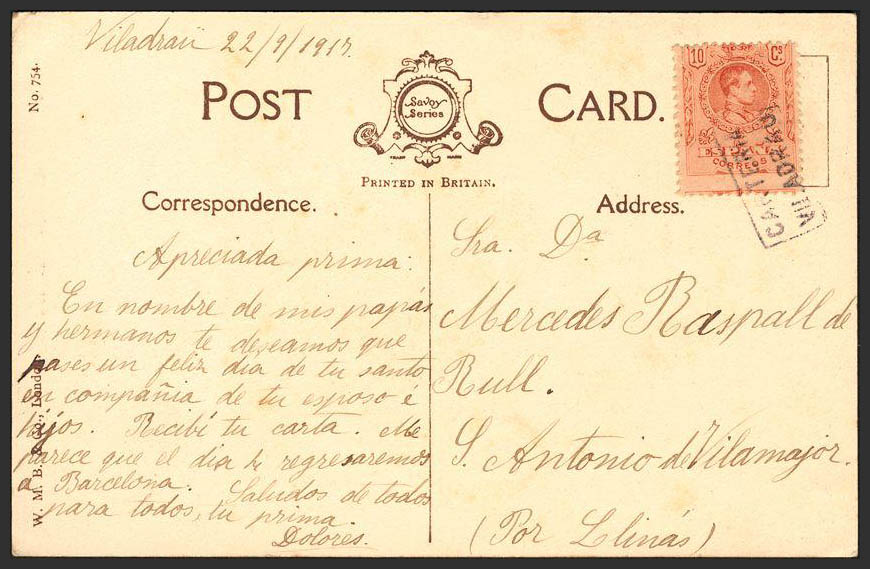 Viladrau 22/9/1917.
No. 754.
POST CARD.
Savoy
Series
TRADE MARK
PRINTED IN BRITAIN.
10 Cs
CORREOS
CARTERIA
VILADRAU
Correspondence.
Apreciada prima:
En nombre de mis papás
y hermanos te deseamos que
pases un feliz dia de tu santo
en compañia de tu esposo é
hijos. Recibí tu carta. Me
parece que el dia regresaremos
a Barcelona. Saludos de todos
para todos, tu prima.
Dolores.
W. M. B. & Co., London.
Address.
Sra. Da
Mercedes Raspall de
Rull.
S. Antonio de Vilamajor.
(Por Llinás)